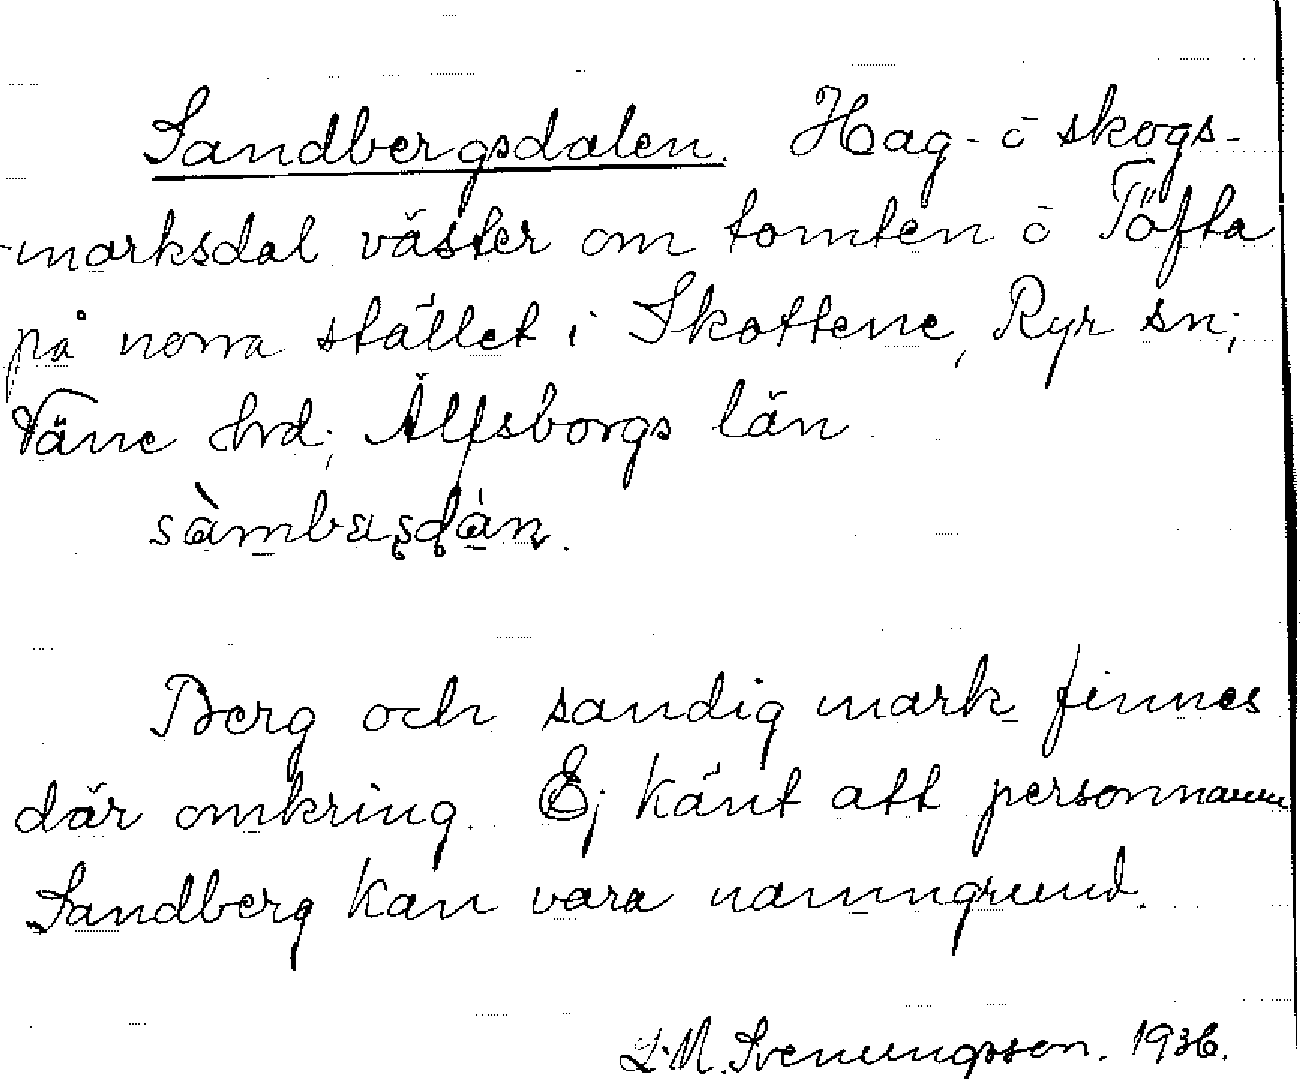 Sandbergsdalen. Hag- o skogs-
marksdal väster om tomten o Töfta
på norra stället i Skottene, Ryr sn;
Väne hrd; Älfsborgs län.

Berg och sandig mark finnes
där omkring. Ej känt att personnamn
Sandberg kan vara namngrund.
L.M. Svenungsson. 1936.